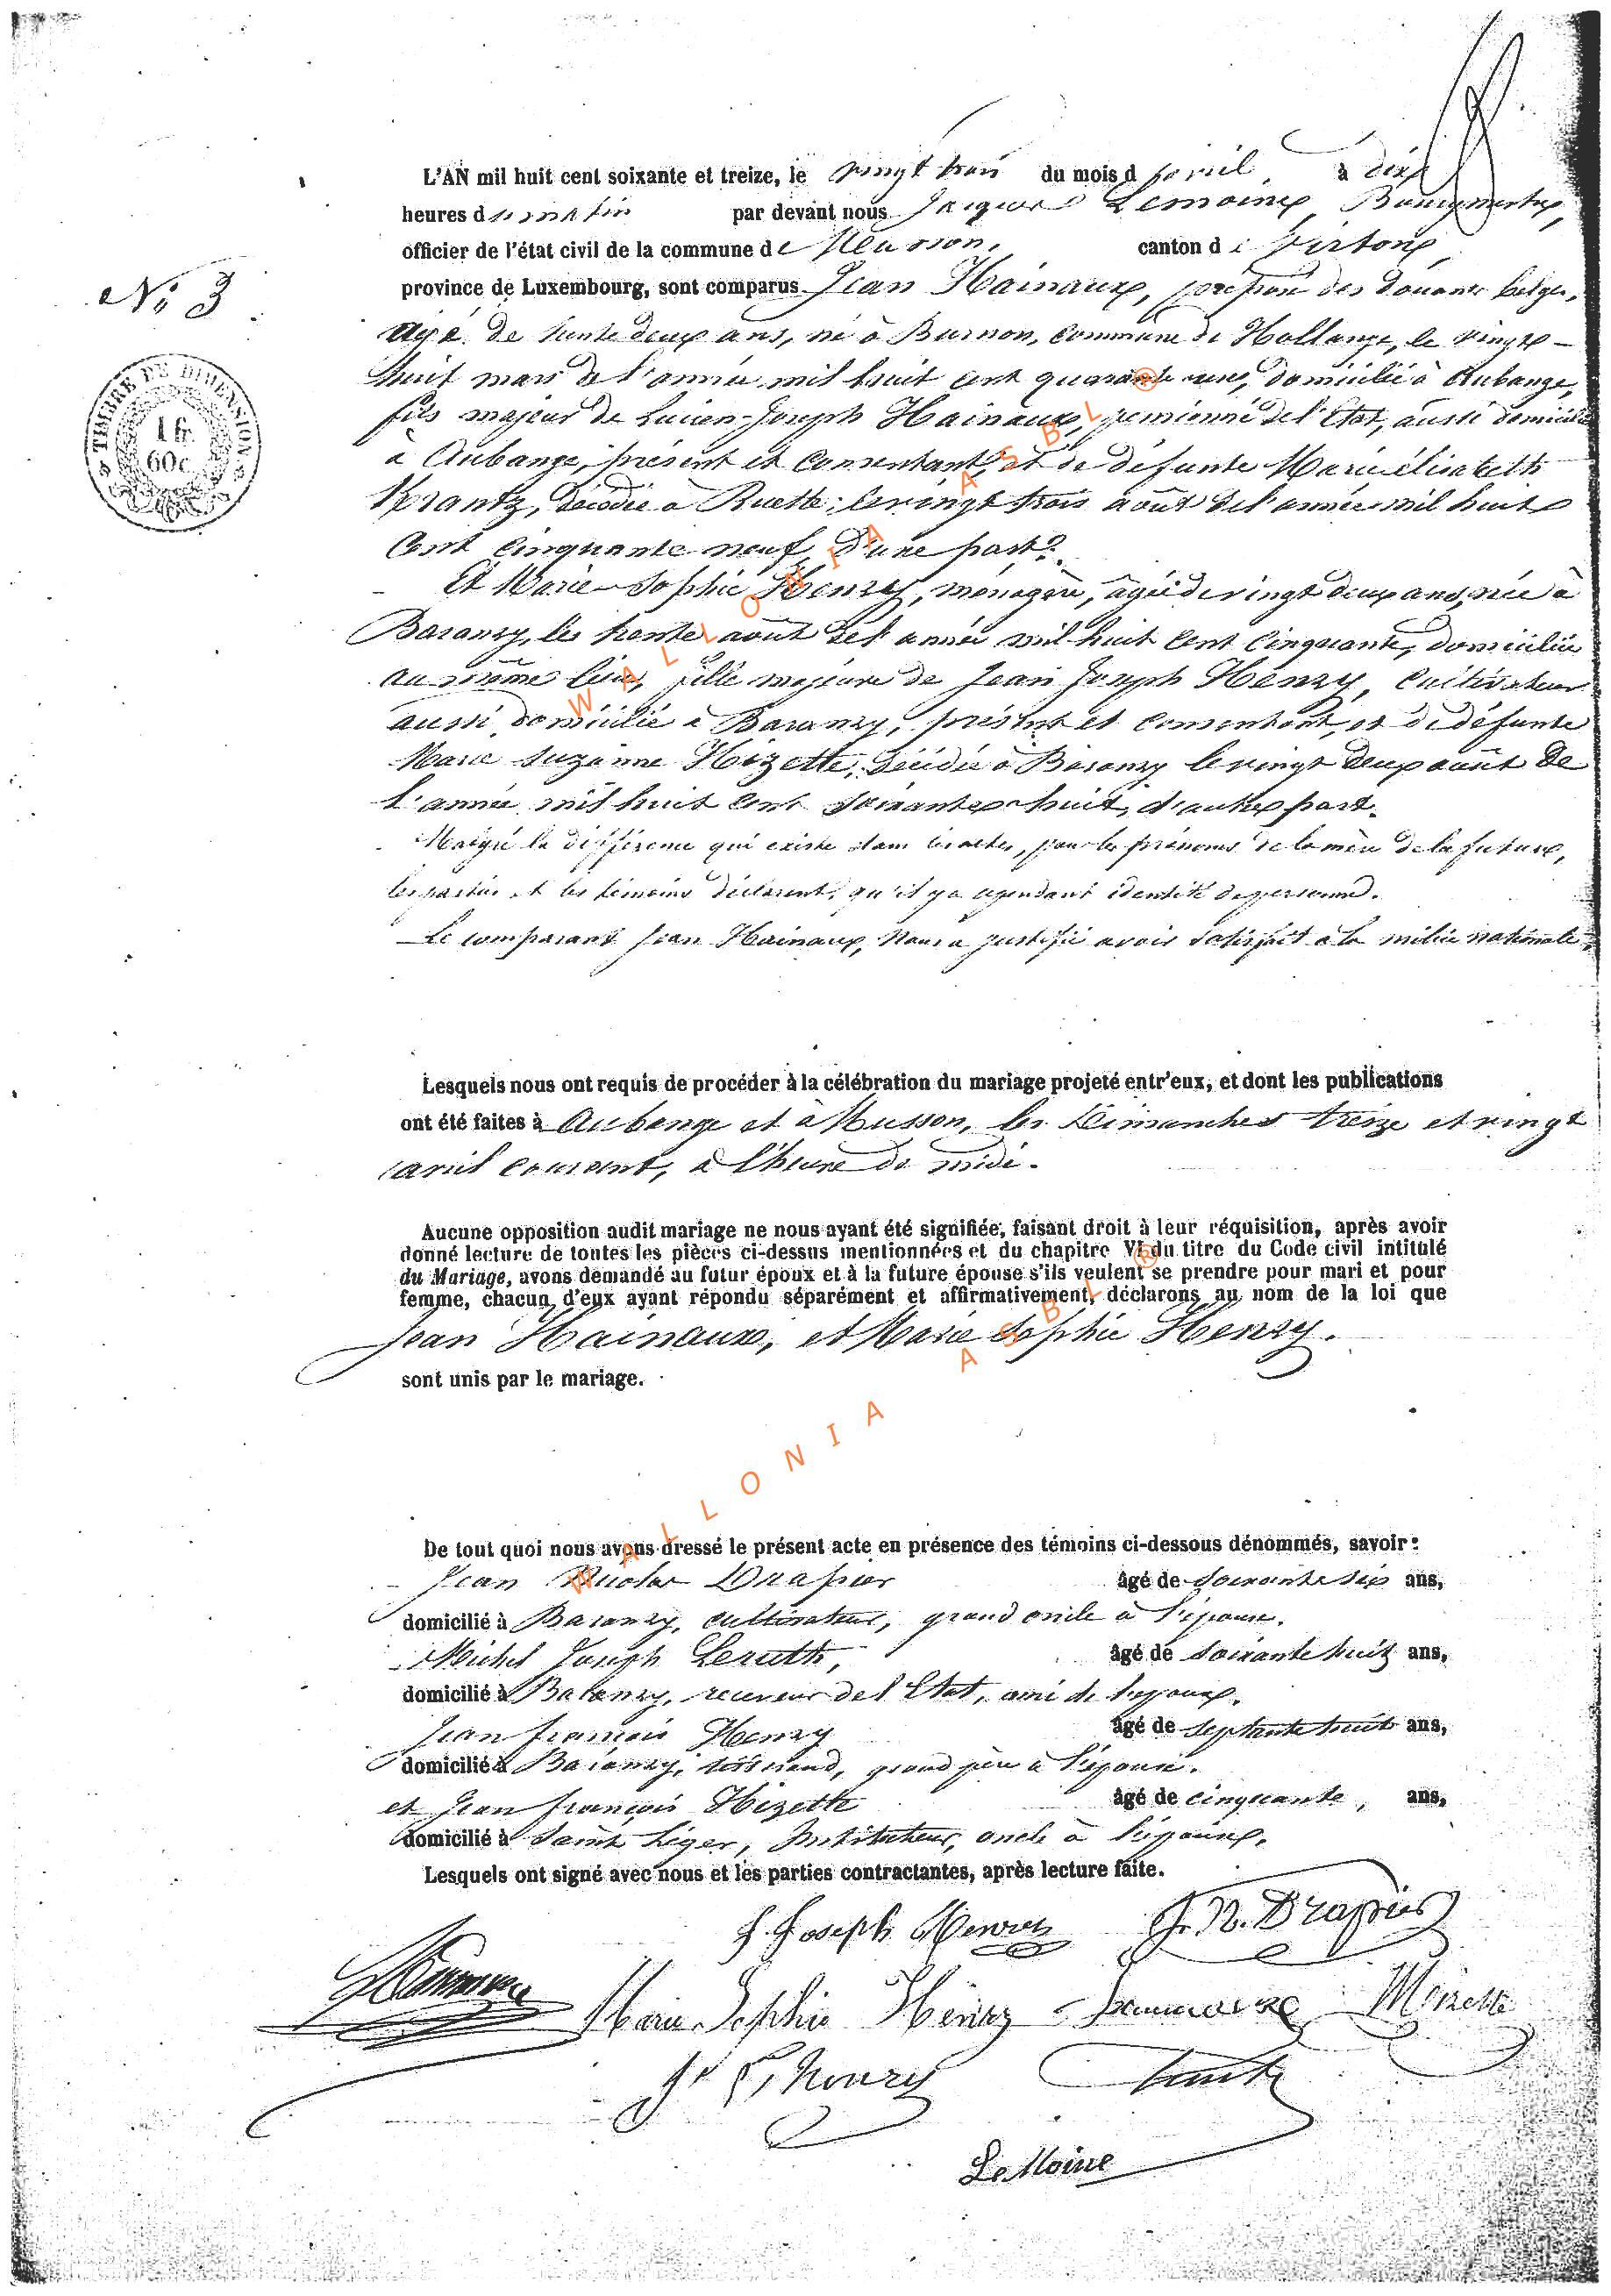 L'AN mil huit cent soixante et treize, le vingt trois du mois d'avril, à dix
heures du matin par devant nous Jacques Lemoine, Bourgmestre,
officier de l'état civil de la commune de Musson, canton de Virton,
province de Luxembourg, sont comparus Jean Hainaux, préposé des douanes belges,
N° 3
âgé de trente deux ans, né à Burnon, commune de Hollange, le vingt-
huit mars de l'année mil huit cent quarante un, domicilié à Aubange,
TIMBRE DE DIMENSION
1 fr.
60 c.
fils majeur de Lucien-Joseph Hainaux, pensionné de l'Etat, aussi domicilié
à Aubange, présent et consentant, et de défunte Marie élisabeth
Krantz, décédée à Ruette, le vingt trois août de l'année mil huit
cent cinquante neuf, d'une part.
Et Marie-Sophie Henry, ménagère, âgée de vingt deux ans, née à
Baranzy, le trente août de l'année mil huit cent cinquante, domiciliée
au même lieu, fille majeure de Jean Joseph Henry, cultivateur
aussi domicilié à Baranzy, présent et consentant, et de défunte
Marie Suzanne Hizette, décédée à Baranzy le vingt deux août de
l'année mil huit cent soixante huit, d'autre part.
Malgré la différence qui existe dans les actes, pour les prénoms de la mère de la future,
les parties et les témoins déclarent, qu'il y a cependant identité de personne.
Le comparant Jean Hainaux, nous a justifié avoir satisfait à la milice nationale.
Lesquels nous ont requis de procéder à la célébration du mariage projeté entr'eux, et dont les publications
ont été faites à Aubange et à Musson, les Dimanches treize et vingt
avril courant, à l'heure de midi.
Aucune opposition audit mariage ne nous ayant été signifiée, faisant droit à leur réquisition, après avoir
donné lecture de toutes les pièces ci-dessus mentionnées et du chapitre VI du titre du Code civil intitulé
du Mariage, avons demandé au futur époux et à la future épouse s'ils veulent se prendre pour mari et pour
femme, chacun d'eux ayant répondu séparément et affirmativement, déclarons au nom de la loi que
Jean Hainaux, et Marie Sophie Henry.
sont unis par le mariage.
De tout quoi nous avons dressé le présent acte en présence des témoins ci-dessous dénommés, savoir :
Jean Nicolas Drapier âgé de soixante six ans,
domicilié à Baranzy, cultivateur, grand oncle à l'épouse.
Michel Joseph Leruth, âgé de soixante huit ans,
domicilié à Baranzy, receveur de l'Etat, ami de l'époux.
Jean françois Henry âgé de septante huit ans,
domicilié à Baranzy, tisserand, grand père à l'épouse.
et Jean françois Hizette âgé de cinquante, ans,
domicilié à Saint Léger, Instituteur, oncle à l'épouse.
Lesquels ont signé avec nous et les parties contractantes, après lecture faite.
J. Joseph Henry J. N. Drapier
Marie Sophie Henry Hizette
J. F. Henry
LeMoine
WALLONIA ASBL ®
WALLONIA ASBL ®